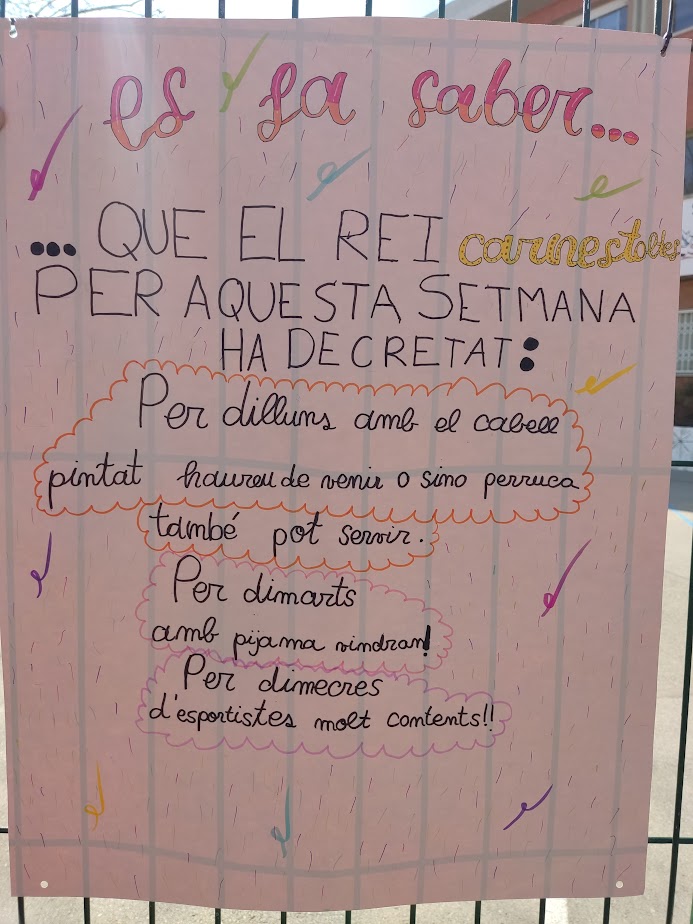 es fa saber...
... QUE EL REI carnestoltes
PER AQUESTA SETMANA
HA DECRETAT:
Per dilluns amb el cabell
pintat haureu de venir o sino perruca
també pot servir.
Per dimarts
amb pijama vindran!
Per dimecres
d'esportistes molt contents!!